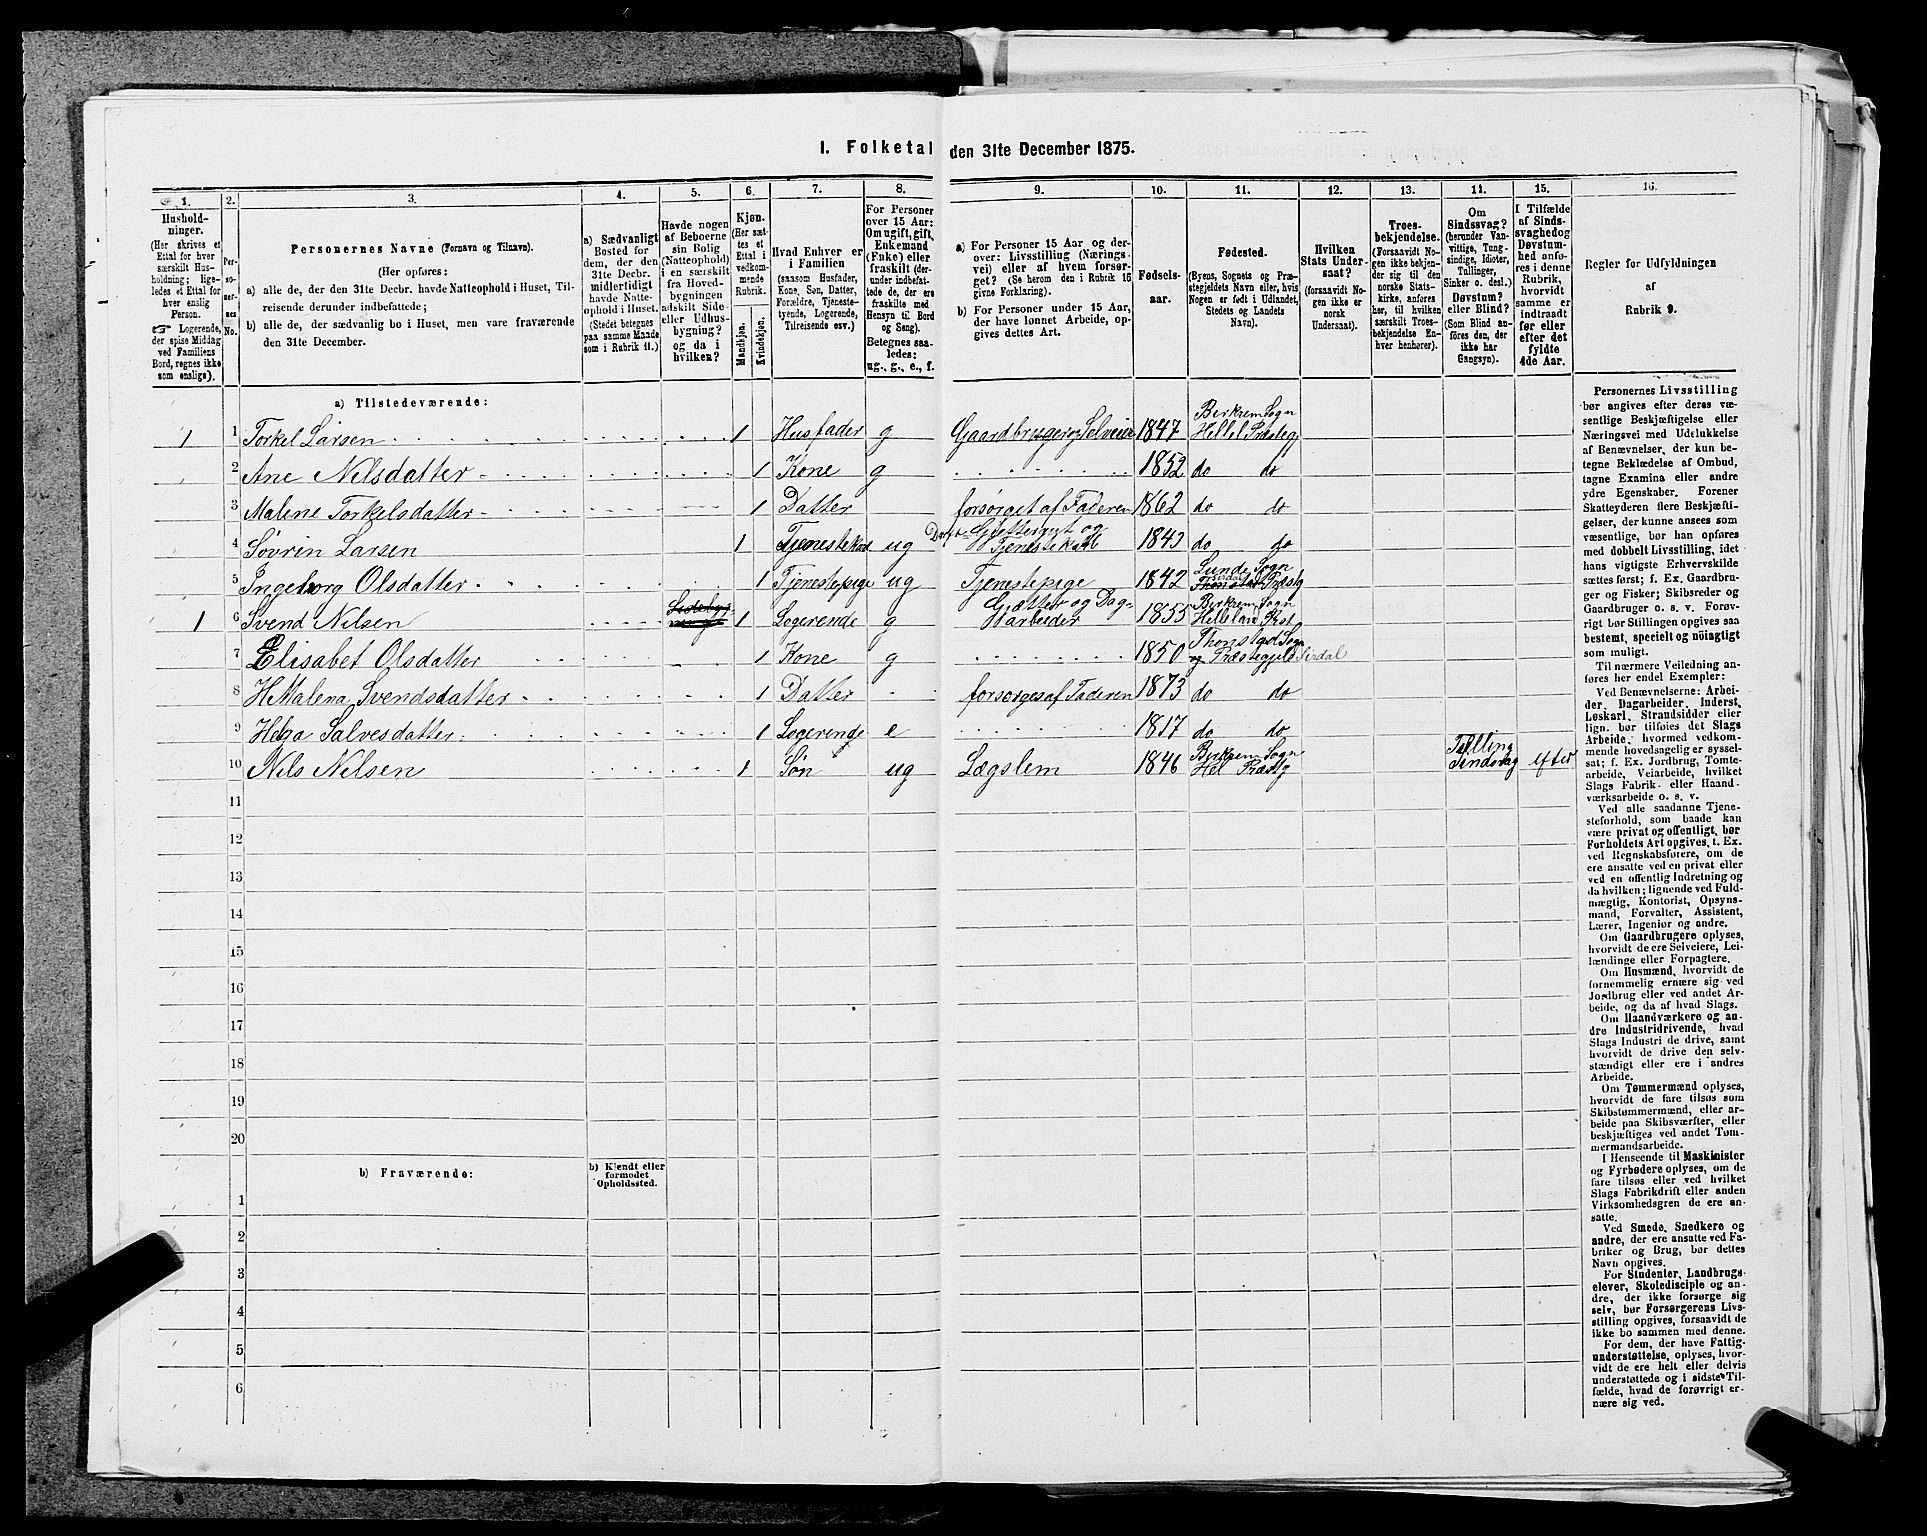 1. Folketal den 31te December 1875.
1. 2. 3. 4. 5. 6. 7. 8. 9. 10. 11. 12. 13. 14. 15. 16.
Hushold-
ninger.
(Her skrives et
Ettal for hver
særskilt Hus-
holdning; lige-
ledes et Ettal for
hver enslig
Person.
☞ Logerende,
der spise Middag
ved Familiens
Bord, regnes ikke
som enslige).
Per-
so-
ner-
nes
No.
Personernes Navne (Fornavn og Tilnavn).
(Her opføres:
a) alle de, der den 31te Decbr. havde Natteophold i Huset, Til-
reisende derunder indbefattede;
b) alle de, der sædvanlig bo i Huset, men vare fraværende
den 31te December.
a) Sædvanligt
Bosted for
dem, der den
31te Decbr.
midlertidigt
havde Natte-
ophold i Huset.
(Stedet betegnes
paa samme Maade
som i Rubrik 11.)
Havde nogen
af Beboerne
sin Bolig
(Natteophold)
i en særskilt
fra Hoved-
bygningen
adskilt Side-
eller Udhus-
bygning?
og da i
hvilken?
Kjøn.
(Her sæt-
tes et
Ettal i
vedkom-
mende
Rubrik.
Mandkjøn.
Kvindekjøn.
Hvad Enhver er
i Familien
(saasom Husfader,
Kone, Søn, Datter,
Forældre, Tjeneste-
tyende, Logerende,
Tilreisende osv.)
For Personer
over 15 Aar:
Om ugift, gift,
Enkemand
(Enke) eller
fraskilt (der-
under indbefat-
tede de, der ere
fraskilte med
Hensyn til Bord
og Seng).
Betegnes saa-
ledes:
ug., g., e., f.
a) For Personer 15 Aar og der-
over: Livsstilling (Nærings-
vei) eller af hvem forsør-
get? (Se herom den i Rubrik 16
givne Forklaring).
b) For Personer under 15 Aar,
der have lønnet Arbeide, op-
gives dettes Art.
Fødsels-
aar.
Fødested.
(Byens, Sognets og Præ-
stegjeldets Navn eller, hvis
Nogen er født i Udlandet,
Stedets og Landets
Navn).
Hvilken
Stats Under-
saat?
(forsaavidt No-
gen ikke er
norsk
Undersaat).
Troes-
bekjendelse.
(Forsaavidt No-
gen ikke bekjen-
der sig til den
norske Stats-
kirke, anføres
her, til hvilken
særskilt Troes-
bekjendelse En-
hver henhører).
Om
Sindssvag?
(herunder Van-
vittige, Tung-
sindige, Idioter,
Tullinger,
Sinker o. desl.)
Døvstum?
eller Blind?
(Som Blind an-
føres den, der
ikke har
Gangsyn).
I Tilfælde
af Sinds-
svaghed og
Døvstum-
hed anfø-
res i denne
Rubrik,
hvorvidt
samme er
indtraadt
før eller
efter det
fyldte
4de Aar.
Regler for Udfyldningen
af
Rubrik 9.
a) Tilstedeværende:
1 1 Torkel Larsen 1 Husfader g Gaardbruger og Selveier 1847 Birkrem Sogn Hellel Præsteg
2 Ane Nilsdatter 1 Kone g 1852 do do
3 Malene Torkelsdatter 1 Datter forsørget af Faderen 1862 do do
4 Søvrin Larsen 1 Tjenestekarl ug og Tjenestekarl 1843 do do
5 Ingeborg Olsdatter 1 Tjenestepige ug Tjenestepige 1842 Lunde Sogn Præstg
1 6 Svend Nilsen 1 Logerende g Gjætter og Dag-arbeider 1855 Birkrem Sogn Helleland Præst
7 Elisabet Olsdatter 1 Kone g 1850 Thonstad Sogn og Præstegjeld Sirdal
8 H Malena Svendsdatter 1 Datter forsørges af Faderen 1873 do do
9 Salvesdatter 1 Logerende e 1817 do do
10 Nils Nilsen 1 Søn ug Lægslem 1846 Birkrem Sogn Hel Præstg Tulling Sindsvag efter
11
12
13
14
15
16
17
18
19
20
b) Fraværende:
b) Kjendt eller
formodet
Opholdssted.
1
2
3
4
5
6
Personernes Livsstilling
bør angives efter deres væ-
sentlige Beskjæftigelse eller
Næringsvei med Udelukkelse
af Benævnelser, der kun be-
tegne Beklædelse af Ombud,
tagne Examina eller andre
ydre Egenskaber. Forener
Skatteyderen flere Beskjæfti-
gelser, der kunne ansees som
væsentlige, bør han opføres
med dobbelt Livsstilling, idet
hans vigtigste Erhvervskilde
sættes først; f. Ex. Gaardbru-
ger og Fisker; Skibsreder og
Gaardbruger o. s. v. Forøv-
rigt bør Stillingen opgives saa
bestemt, specielt og nøiagtigt
som muligt.
Til nærmere Veiledning an-
føres her endel Exempler:
Ved Benævnelserne: Arbei-
der, Dagarbeider, Inderst,
Løskarl, Strandsidder eller
lign. bør tilføies det Slags
Arbeide, hvormed vedkom-
mende hovedsagelig er syssel-
sat; f. Ex. Jordbrug, Tomte-
arbeide, Veiarbeide, hvilket
Slags Fabrik- eller Haand-
værksarbeide o. s. v.
Ved alle saadanne Tjene-
steforhold, som baade kan
være privat og offentligt, bør
Forholdets Art opgives, t. Ex.
ved Regnskabsførere, om de
ere ansatte ved en privat eller
ved en offentlig Indretning og
da hvilken; lignende ved Fuld-
mægtig, Kontorist, Opsyns-
mand, Forvalter, Assistent,
Lærer, Ingeniør og andre.
Om Gaardbrugere oplyses,
hvorvidt de ere Selveiere, Lei-
lændinge eller Forpagtere.
Om Husmænd, hvorvidt de
fornemmelig ernære sig ved
Jordbrug eller ved andet Ar-
beide, og da af hvad Slags.
Om Haandværkere og an-
dre Industridrivende, hvad
Slags Industri de drive, samt
hvorvidt de drive den selv-
stændigt eller ere i andres
Arbeide.
Om Tømmermænd oplyses,
hvorvidt de fare tilsøs som
Skibstømmermænd, eller ar-
beide paa Skibsværfter, eller
beskjæftiges ved andet Tøm-
mermandsarbeide.
I Henseende til Maskinister
og Fyrbødere oplyses, om de
fare tilsøs eller ved hvilket
Slags Fabrikdrift eller anden
Virksomhedsgren de ere an-
satte.
Ved Smede, Snedkere og
andre, der ere ansatte ved Fa-
briker og Brug, bør dettes
Navn opgives.
For Studenter, Landbrugs-
elever, Skoledisciple og an-
dre, der ikke forsørge sig
selv, bør Forsørgerens Livs-
stilling opgives, forsaavidt de
ikke bo sammen med denne.
For dem, der have Fattig-
understøttelse, oplyses, hvor-
vidt de ere helt eller delvis
understøttede og i sidste Til-
fælde, hvad de forøvrigt er-
nære sig ved.